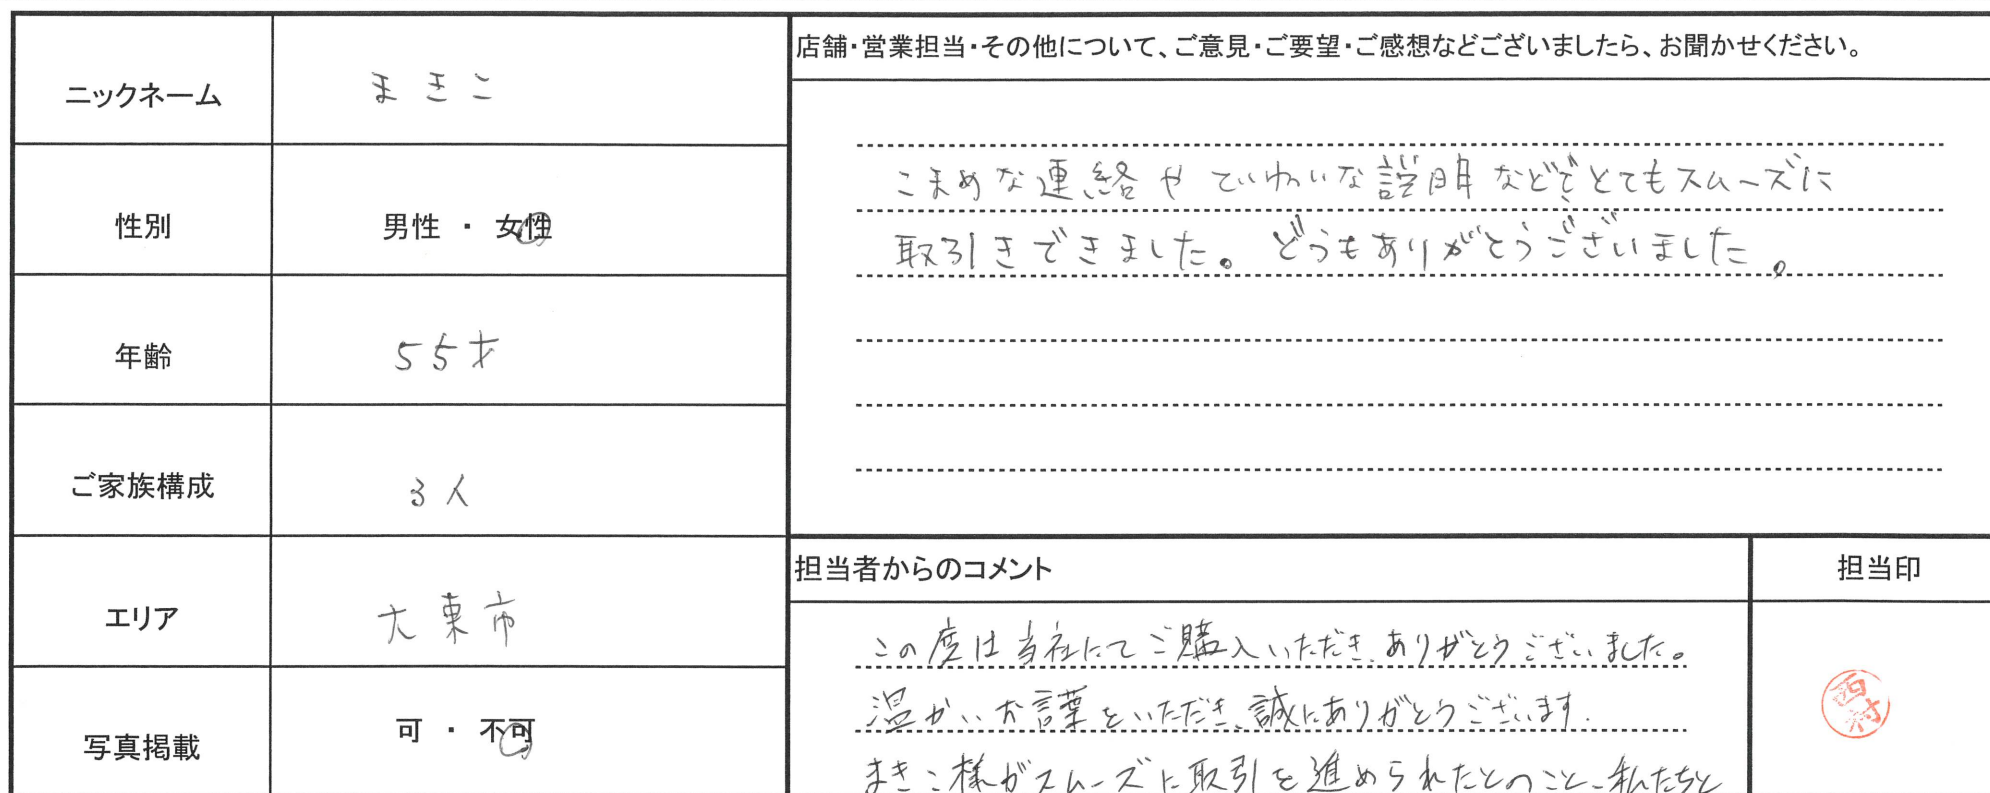 ニックネーム
まきこ
性別
男性 ・ 女性
年齢
55才
ご家族構成
3人
エリア
大東市
写真掲載
可 ・ 不可
店舗・営業担当・その他について、ご意見・ご要望・ご感想などございましたら、お聞かせください。
こまめな連絡や ていねいな説明などでとてもスムーズに
取引きできました。どうもありがとうございました。
担当者からのコメント
この度は当社にてご購入いただき、ありがとうございました。
温かいお言葉をいただき、誠にありがとうございます。
まきこ様がスムーズに取引を進められたとのこと、私たちと
担当印
西村